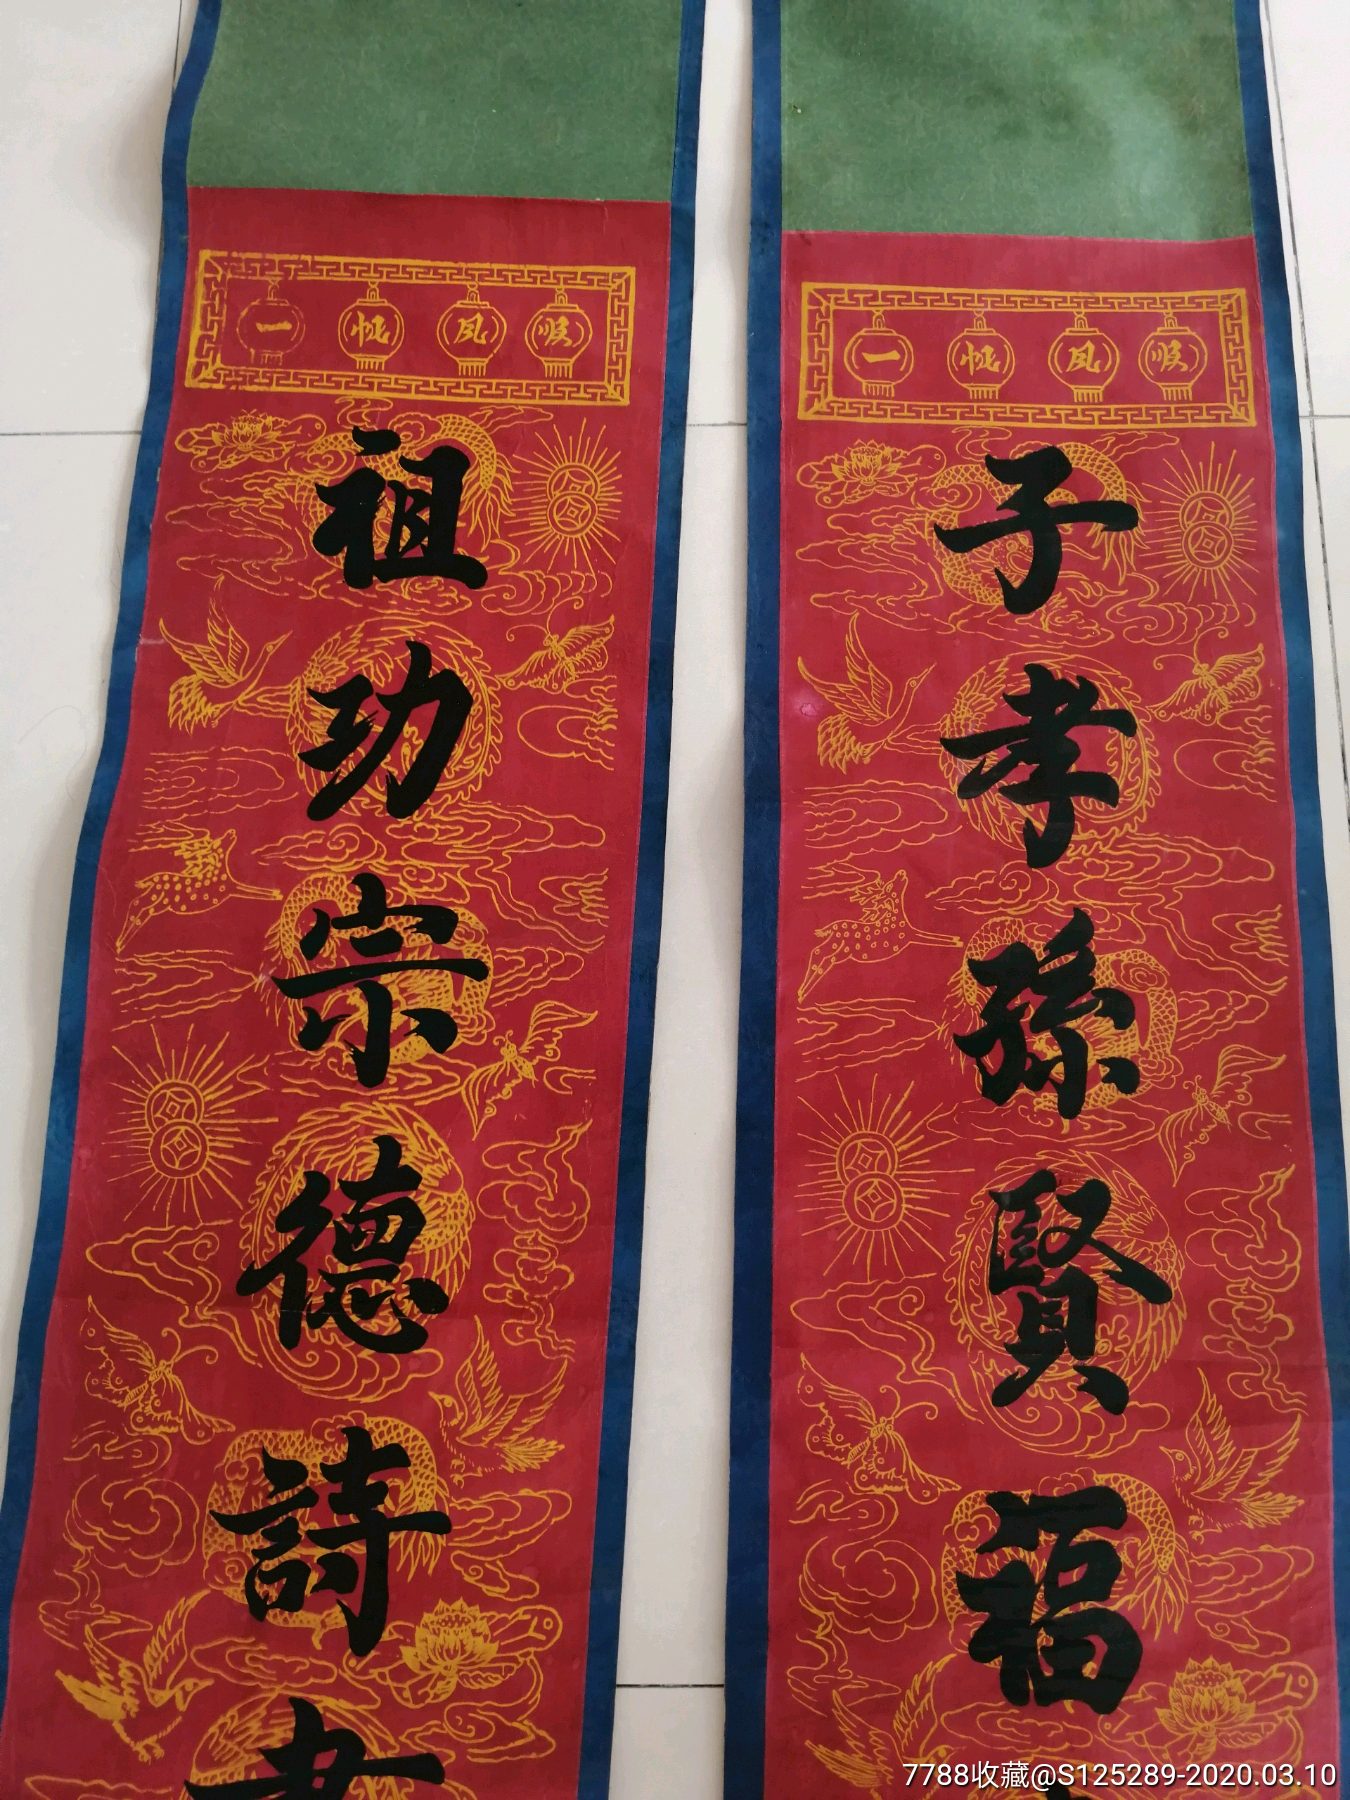 一帆风顺
祖功宗德詩書
一帆风顺
子孝孫賢福
7788收藏@S125289-2020.03.10